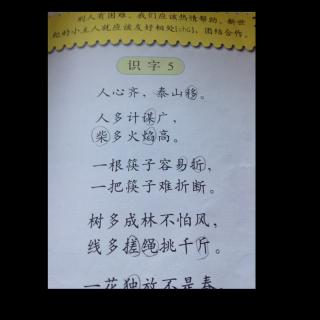 别人有困难，我们应该热情帮助。新世
纪的小主人就应该友好相处[chǔ]，团结合作。
识字5
人心齐，泰山移。
人多计谋广，
柴多火焰高。
一根筷子容易折，
一把筷子难折断。
树多成林不怕风，
线多搓绳挑千斤。
一花独放不是春，